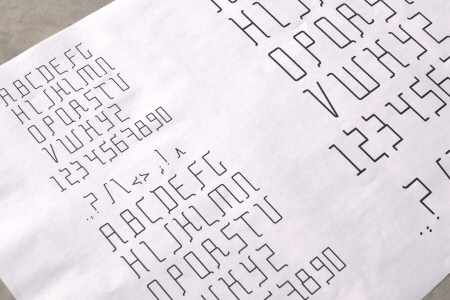 ABCDEFG
HIJKLMN
OPQRSTU
VWXYZ
1234567890
.:? /\ <> ,! ^
ABCDEFG
HIJKLMN
OPQRSTU
VWXYZ
7890
HIJKLM
OPQRSTU
VWXYZ
123456
.:?